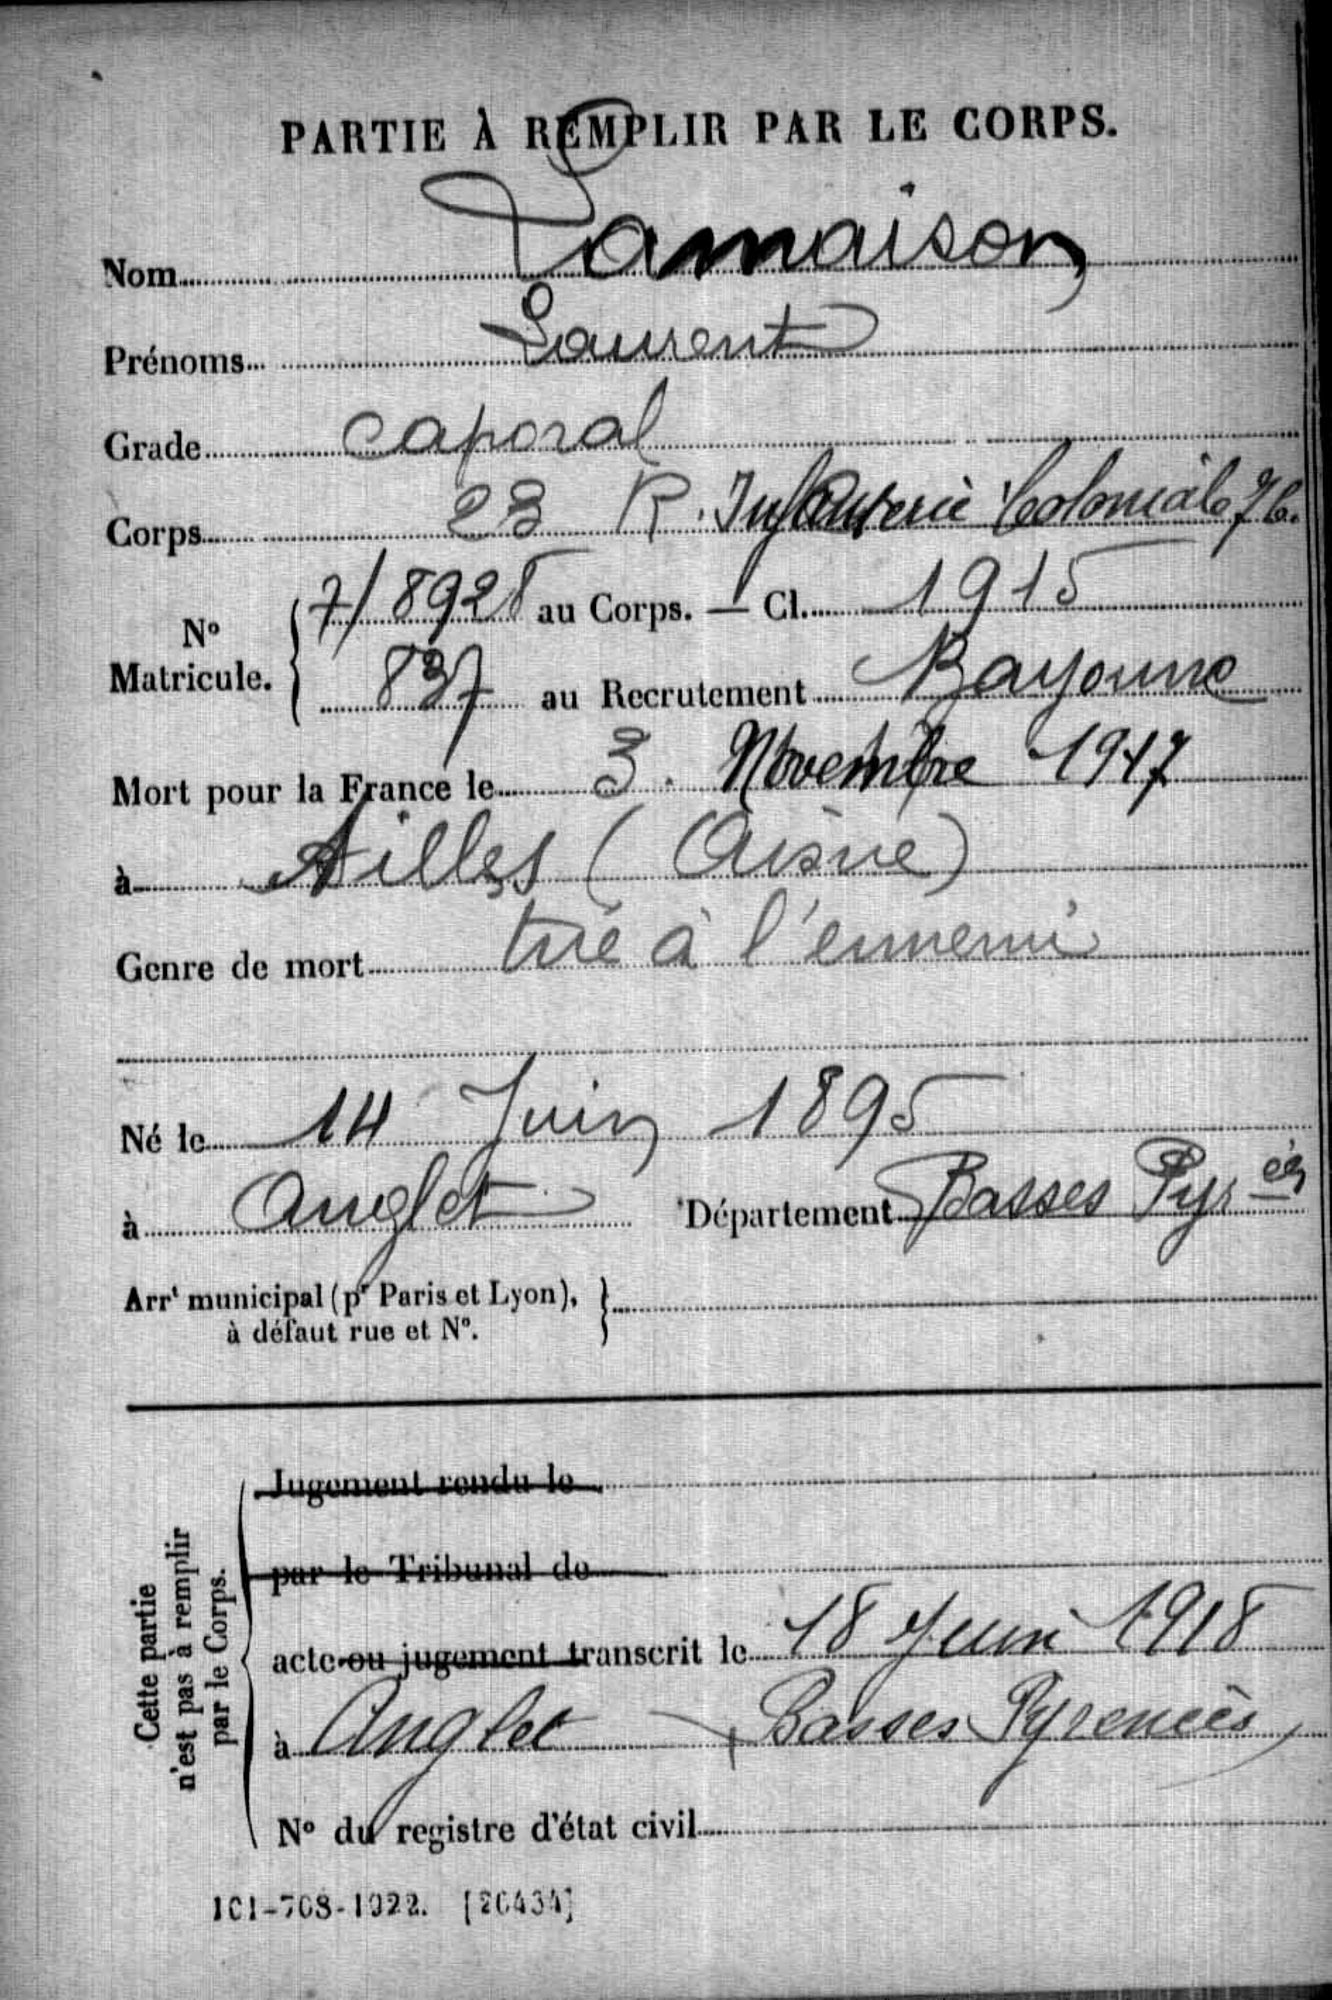 PARTIE À REMPLIR PAR LE CORPS.
Nom Lamaison
Prénoms Laurent
Grade caporal
Corps 23 R. Infanterie Coloniale 7 C.
7/8928 au Corps. — Cl. 1915
N° Matricule.
837 au Recrutement Bayonne
Mort pour la France le 3 Novembre 1917
à Ailles (Aisne)
Genre de mort tué à l'ennemi
Né le 14 Juin 1895
à Anglet Département Basses Pyr ées
Arrt municipal (pr Paris et Lyon),
à défaut rue et N°.
Cette partie
n'est pas à remplir
par le Corps.
Jugement rendu le
par le Tribunal de
acte ou jugement transcrit le 18 Juin 1918
à Anglet Basses Pyrenées
N° du registre d'état civil
101-708-1922. [26434]